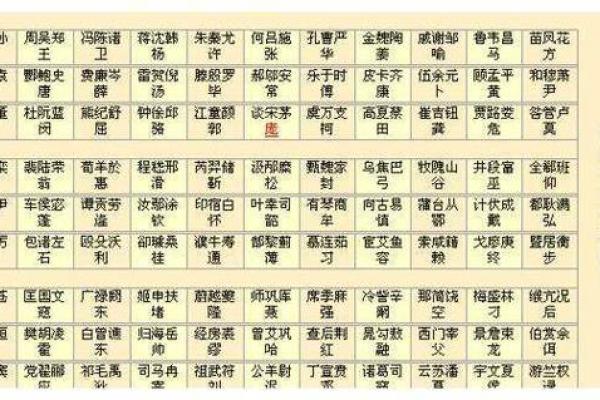 周吴郑 冯陈诸 蒋沈韩 朱秦尤 何吕施 孔曹严 金魏陶 戚谢邹 鲁韦昌 苗凤花
王 卫 杨 许 张 华 姜 喻 马 方
酆鲍史 费廉岑 雷贺倪 滕殷罗 郝邬安 乐于时 皮卞齐 伍余元 顾孟平 和穆萧
唐 薛 汤 毕 常 康 卜 黄 尹
杜阮蓝 熊纪舒 钟徐邱 江童颜 谈宋茅 虞万支 高夏蔡 崔吉钮 贾路娄 昝管卢
闵 骆 郭 庞 柯 田 龚 危 莫
裴陆荣 荀羊於 程嵇邢 芮羿储 汲邴糜 甄魏家 乌焦巴 牧隗山 井段富 全郗班
翁 惠 滑 靳 松 封 弓 谷 巫 仰
车侯宓 谭贡劳 汝鄢涂 印宿白 叶幸司 有琴商 向古易 计伏成 都耿满
蓬 钦 怀 韶 慎 戴 弘
包诸左 殳沃利 郤璩桑 濮牛寿 郜黎蓟 慕连茹 宦艾鱼 索咸籍 戈廖庾 暨居衡
石 桂 通 薄 习 容 赖 终 步
匡国文 广禄阙 姬申扶 蔚越夔 师巩厍 席季麻 冷訾辛 那简饶 梅盛林 缑亢况
寇 东 堵 隆 聂 强 阚 空 刁 后
樊胡凌 白曾谯 归海岳 经房裘 曾艾巩 查后荆 晃勾敖 西门宰 景詹束 伯赏佘
霍 东 州 缪 哈 红 融 父 龙 佴
党翟 祁毛禹 司马冉 祖武符 公羊尉 丁宣贲 诸葛司 云苏潘 宇文夏 游竺权